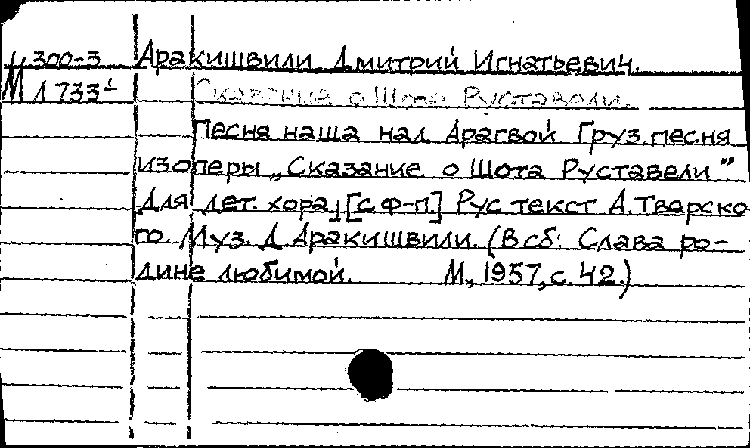 М 300-3 Аракишвили Дмитрий Игнатьевич.
М 1733¹ Сказание о Шота Руставели.
Песня наша над Арагвой Груз. песня
из оперы „Сказание о Шота Руставели”
Для дет. хора, [с ф-п.] Рус текст А. Тверско
го. Муз. Д. Аракишвили. (В сб: Слава ро-
дине любимой. М., 1957, с. 42.)